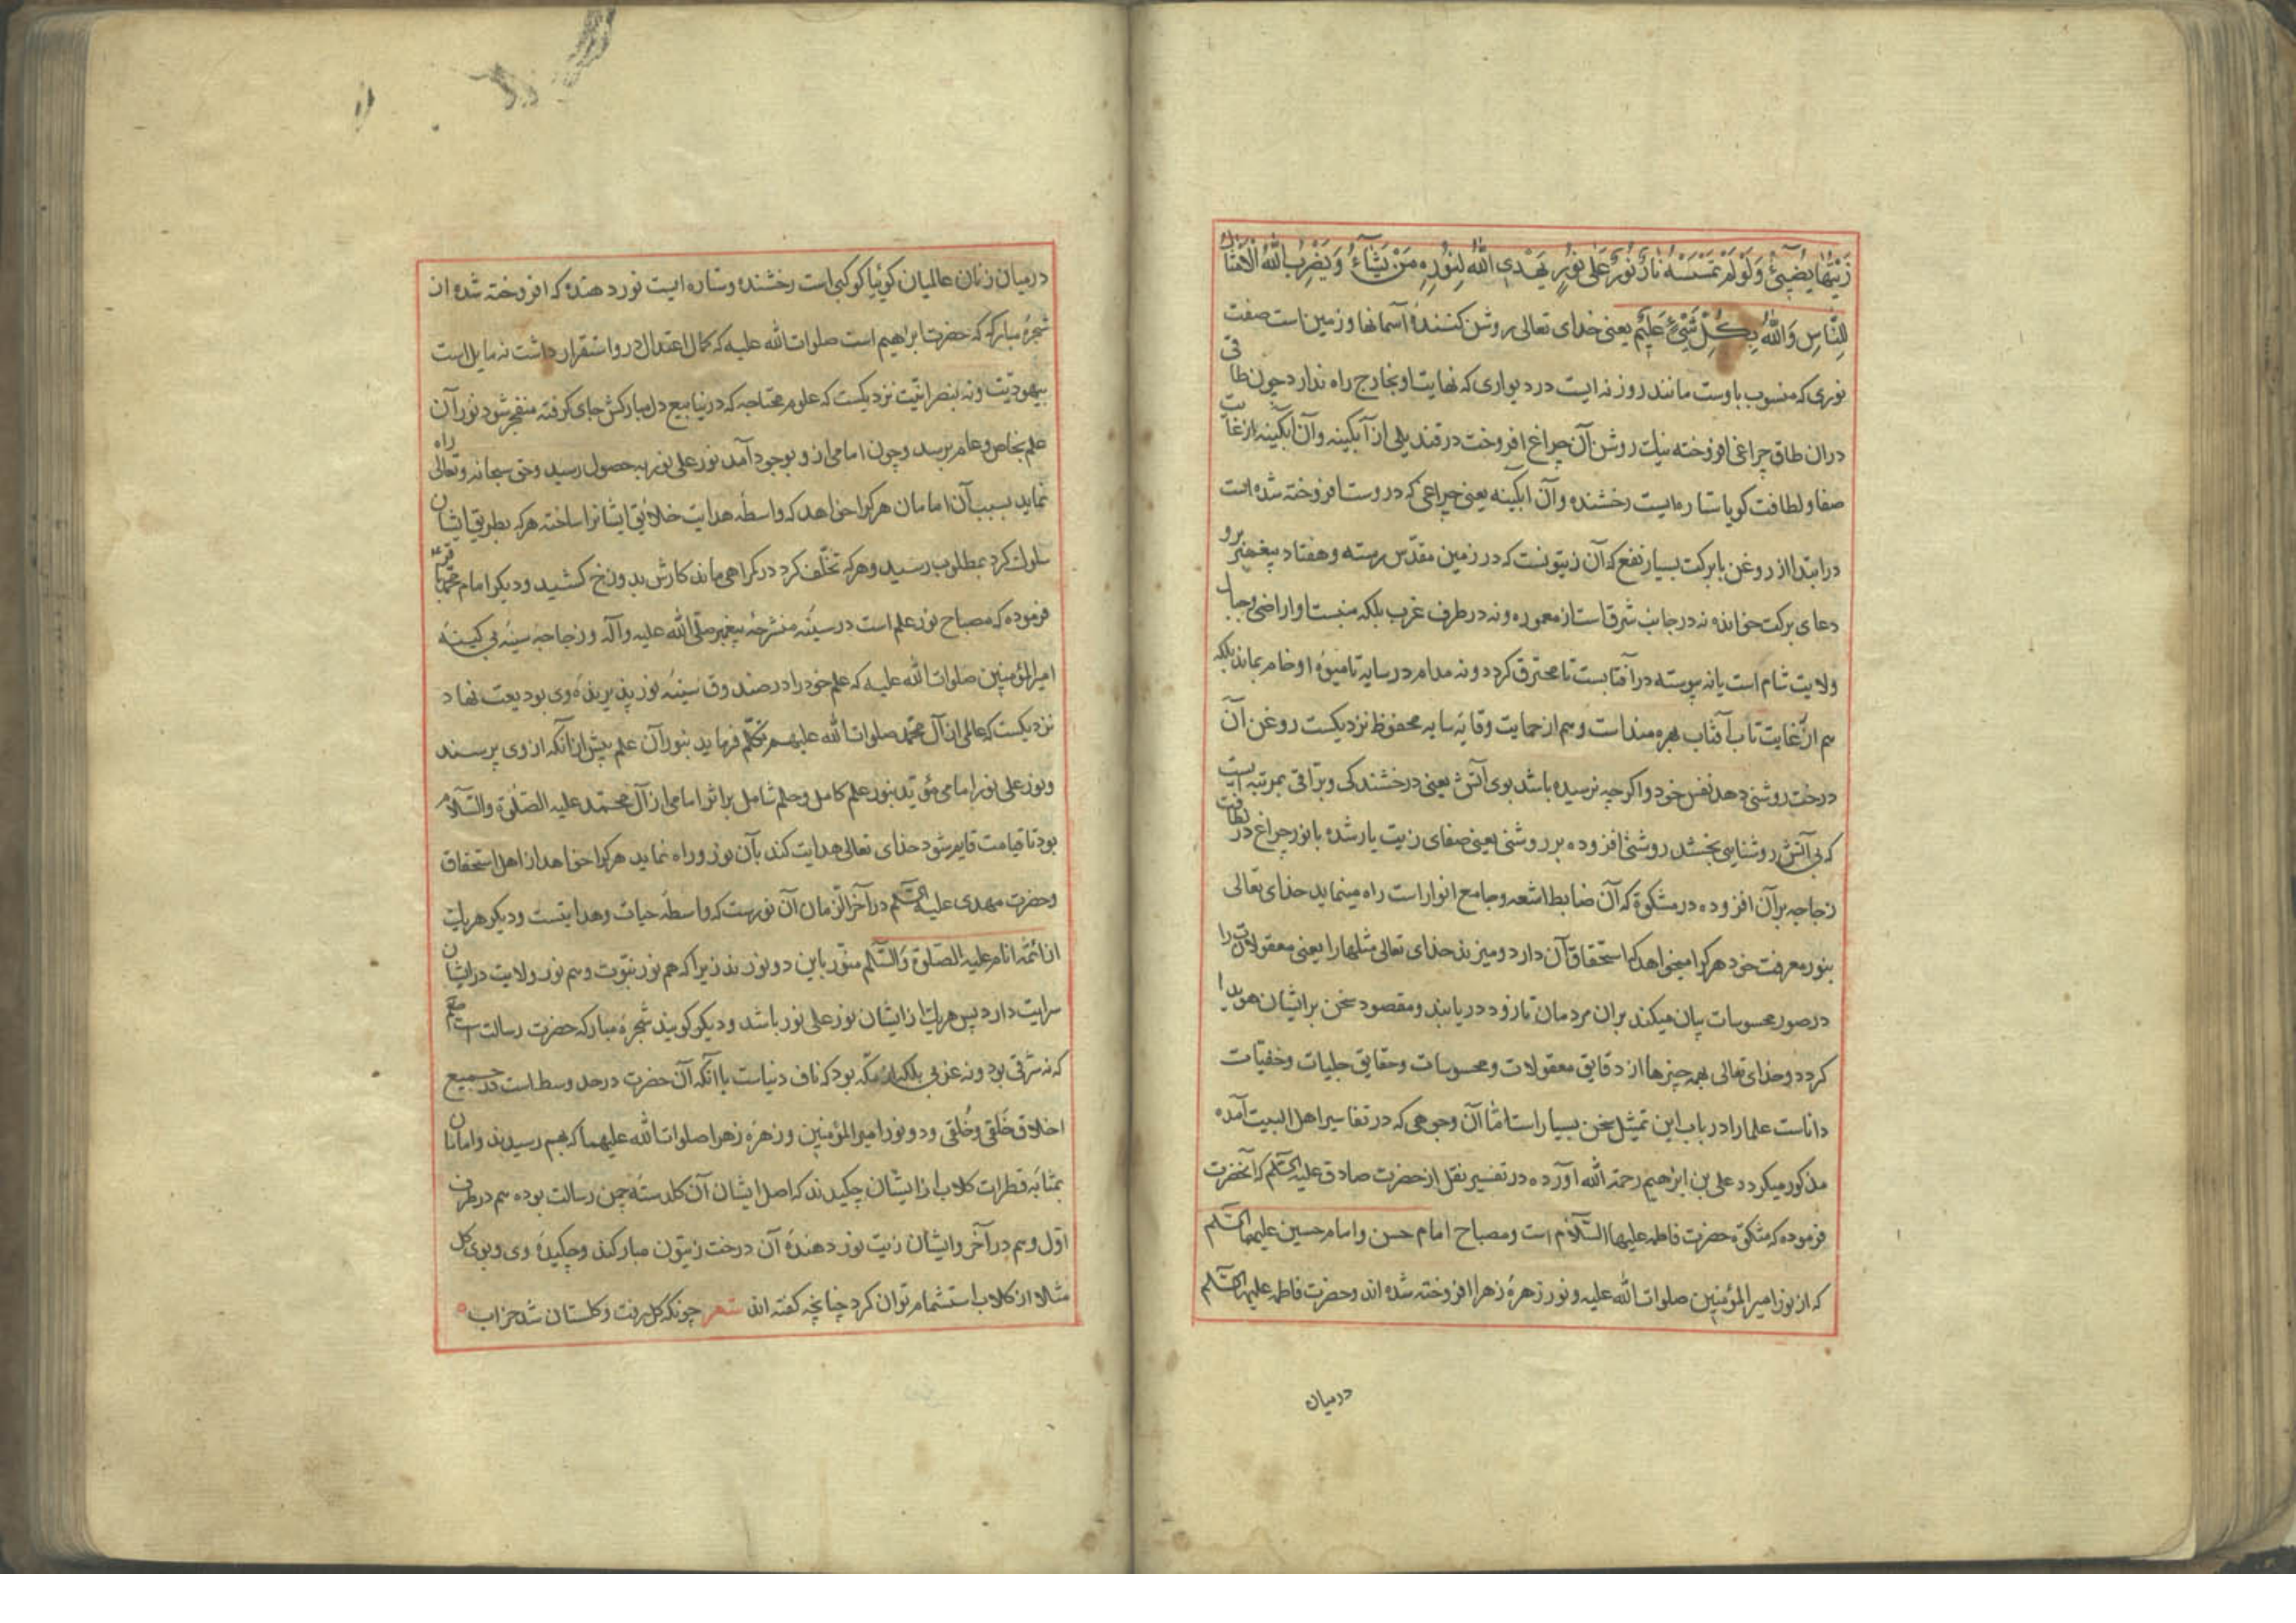 زَيْتُهَا يُضِيئُ وَلَوْ لَمْ تَمْسَسْهُ نَارٌ نُورٌ عَلَى نُورٍ يَهْدِي اللّٰهُ لِنُورِهِ مَنْ يَشَآءُ وَيَضْرِبُ اللّٰهُ الْاَمْثَالَ
لِلنَّاسِ وَاللّٰهُ بِكُلِّ شَيْءٍ عَلِيمٌ یعنی خدای تعالی روشن کنندهٔ آسمانها و زمین است صفت
نوری که منسوب باوست مانند روزنه ایست در دیواری که نهایت او بخارج راه ندارد چون طاقی
دران طاق چراغی افروخته نیک روشن آن چراغ افروخت در قندیلی از آبگینه وآن آبگینه از غایت
صفا و لطافت کویا ستاره ایست رخشنده وآن ابگینه یعنی چراغی که دروست افروخته شده است
در ابتدا از روغن با برکت بسیار نفع که آن زیتونست که در زمین مقدّس رسته وهفتاد پیغمبر برو
دعای برکت خوانده نه در جانب شرقاست از معموره ونه در طرف غرب بلکه منبست او اراضی وجبال
ولایت شام است یا نه پیوسته در آفتابست تا محترق کردد ونه مدام در سایه تا میوهٔ او خام بماند بلکه
هم از غایت تاب آفتاب بهره مند است وهم از حمایت وقایهٔ سایه محفوظ نزدیکست روغن آن
درخت روشنی دهد بنفس خود واکرچه نرسیده باشد بوی آتش یعنی درخشندکی وبرّاقی بمرتبه ایست
که بی آتش روشنایی بخشد روشنی افزوده بر روشنی یعنی صفای زیت یار شده با نور چراغ در لطافت
زجاجه بر آن افزوده در مشکوة که آن ضابط اشعه وجامع انوار است راه مینماید خدای تعالی
بنور معرفت خود هر کرا میخواهد که استحقاق آن دارد ومیزند خدای تعالی مثلها را یعنی معقولات را
در صور محسوسات بیان میکند بران مردمان تا زود دریابند ومقصود سخن بر ایشان هویدا
کردد وخدای تعالی بهمه چیزها از دقایق معقولات ومحسوسات وحقایق جلیات وخفیّات
داناست علما را در باب این تمثیل سخن بسیار است امّا آن وجوهی که در تفاسیر اهل البیت آمده
مذکور میکردد علی بن ابراهیم رحمة الله آورده در تفسیر نقل از حضرت صادق علیه السّلم که آنحضرت
فرموده که مشکوة حضرت فاطمه علیها السّلام است ومصباح امام حسن وامام حسین علیهما السّلم
که از نور امیر المؤمنین صلوات الله علیه ونور زهرهٔ زهرا افروخته شده اند وحضرت فاطمه علیها السّلم
درمیان
درمیان زنان عالمیان کوئیا کوکبی است رخشنده وستاره ایست نور دهنده که افروخته شده از
شجرهٔ مبارکه که حضرت ابراهیم است صلوات الله علیه که کمال اعتدال درو استقرار داشت نه مایل است
بیهودیّت ونه بنصرانیّت نزدیکست که علوم محتاجه که در ینابیع دل مبارکش جای کرفته منفجر شود نور آن
علم بخاص وعام برسد وچون امامی از و بوجود آمد نور علی نور بحصول رسید وحق سبحانه وتعالی راه
نماید بسبب آن امامان هر کرا خواهد که واسطهٔ هدایت خلائق ایشانرا ساخته هر که بطریق ایشان
سلوک کرد بمطلوب رسید وهر که تخلّف کرد در کمراهی ماند کارش بدوزخ کشید ودیکر امام محمّد باقر ع
فرموده که مصباح نور علم است در سینهٔ منشرحهٔ پیغمبر صلّی الله علیه وآله وزجاجه سینهٔ بی کینهٔ
امیر المؤمنین صلوات الله علیه که علم خود را در صندوق سینهٔ نور پذیرندهٔ وی بودیعت نهاد
نزدیکست که عالمی از آل محمّد صلوات الله علیهم تکلّم فرماید بنور آن علم پیش از آنکه از وی پرسند
ونور علی نور امامی مؤیّد بنور علم کامل وحلم شامل بر اثر امامی از آل محمّد علیه الصّلوة والسّلام
بود تا قیامت قایم شود خدای تعالی هدایت کند بآن نور وراه نماید هر کرا خواهد از اهل استحقاق
وحضرت مهدی علیه السّلم در آخر الزمان آن نورست که واسطهٔ حیات وهدایتست ودیکر هر یک
از ائمّهٔ انام علیه الصّلوة وَالسَّلم منوّر باین دو نورند زیرا که هم نور نبوّت وهم نور ولایت در ایشان
سرایت دارد پس هر یک از ایشان نور علی نور باشد ودیکر کویند شجرهٔ مبارکه حضرت رسالت است صلعم
که نه شرقی بود ونه غربی بلکه از مکّه بود که ناف دنیاست یا آنکه آن حضرت در حد وسط است در جمیع
اخلاق خَلقی وخُلقی ودو نور امیر المؤمنین وزهرهٔ زهرا صلوات الله علیهما که بهم رسیدند وامامان
بمثابهٔ قطرات کلاب از ایشان چکیدند که اصل ایشان آن کلدستهٔ چمن رسالت بوده هم در طرف
اوّل وهم در آخر وایشان زیت نور دهندهٔ آن درخت زیتون مبارکند وچکیدهٔ وی وبوی کل
مثلا از کلاب استشمام توان کرد چنانچه کفته اند شعر چونکه کل رفت وکلستان شد خراب